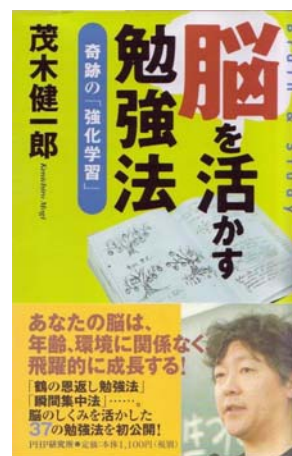 Brain & Study
脳を活かす
勉強法
奇跡の「強化学習」
茂木健一郎
Kenichiro Mogi
あなたの脳は、
年齢、環境に関係なく
飛躍的に成長する!
「鶴の恩返し勉強法」
「瞬間集中法」……。
脳のしくみを活かした
37の勉強法を初公開!
PHP研究所●定価:本体1,100円(税別)